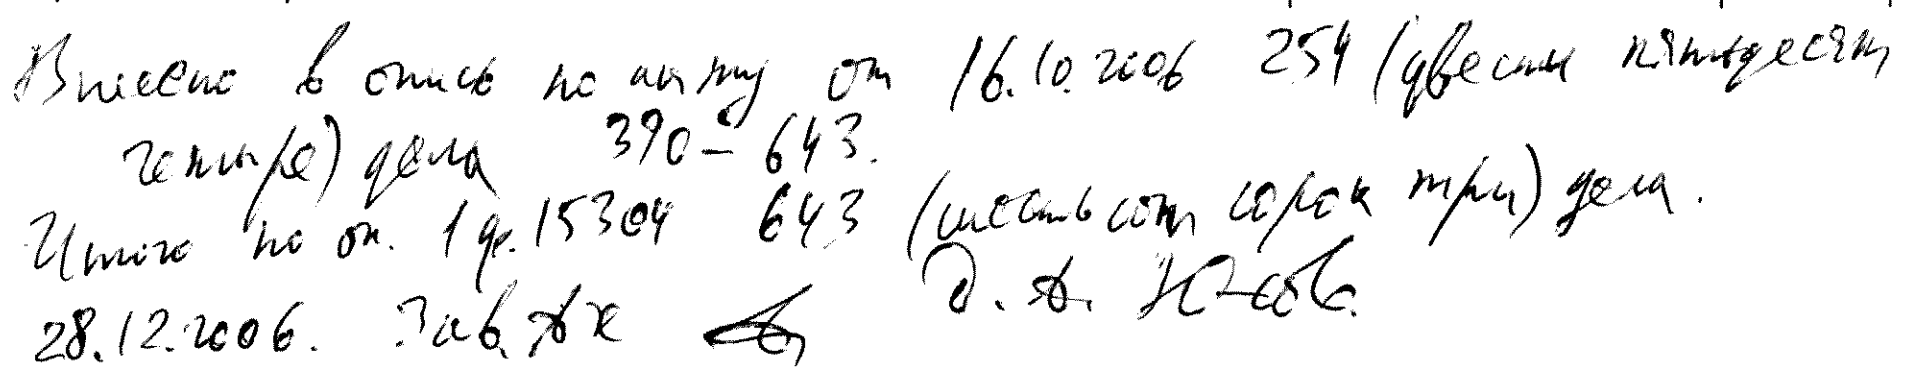 Внесено в опись по акту от 16.10.2006 254 (двести пятьдесят
четыре) дела 390–643.
Итого по оп. 1 ф. 15304 643 (шестьсот сорок три) дела.
28.12.2006. Зав. А.